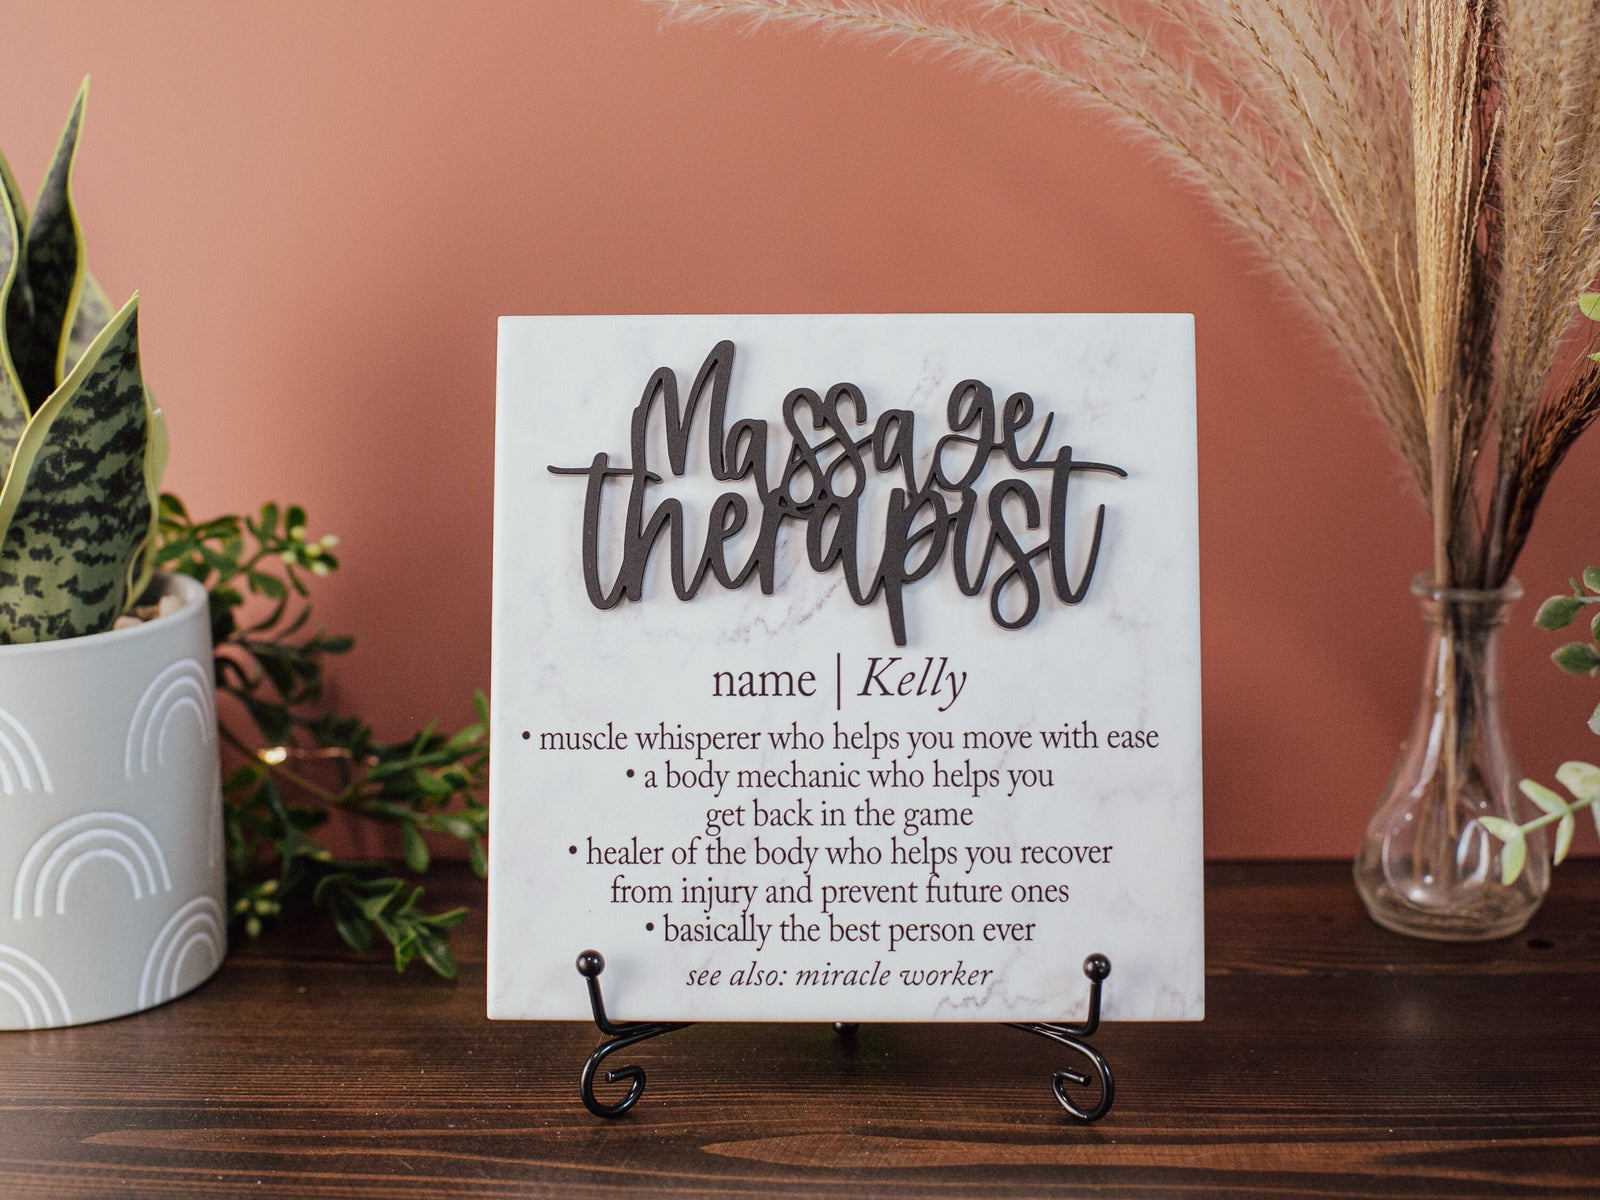 Massage
therapist
name | Kelly
• muscle whisperer who helps you move with ease
• a body mechanic who helps you
get back in the game
• healer of the body who helps you recover
from injury and prevent future ones
• basically the best person ever
see also: miracle worker